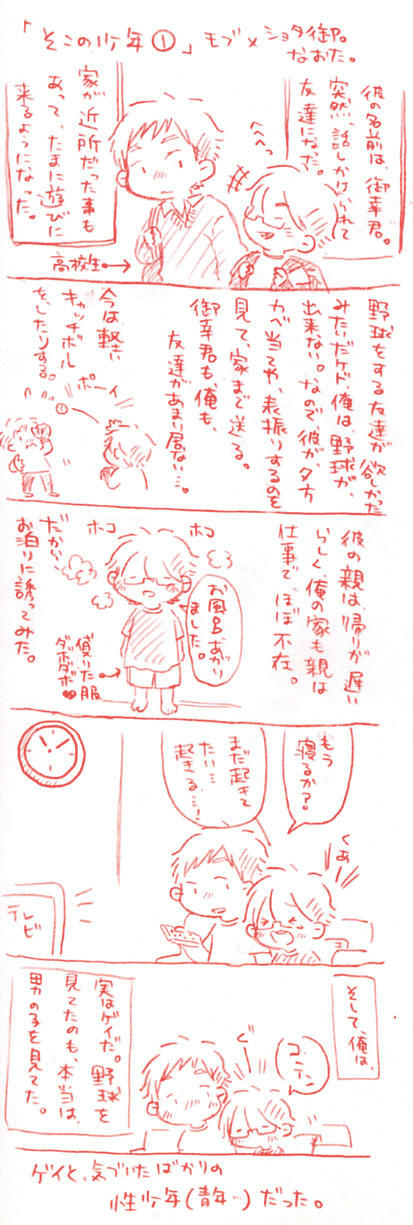 「そこの少年①」モブ×ショタ御。
なおた。
彼の名前は、御幸君。
突然、話しかけられて
友達になった。
へへっ
家が近所だった事も
あって、たまに遊びに
来るようになった。
高校生→
野球をする友達が欲しかった
みたいだケド、俺は、野球が、
出来ない。なので、彼が夕方
カベ当てや、素振りするのを
見て、家まで送る。
御幸君も、俺も、
友達があまり居ない…。
今は軽い
キャッチボール
をしたりする。
ポーイ
彼の親は、帰りが遅い
らしく、俺の家も親は
仕事で、ほぼ不在。
ホコ
ホコ
お風呂あがり
ました。
借りた服
ダボダボ
だから、
お泊りに誘ってみた。
もう
寝るか?
まだ起きて
たい…
起きる…!
くあ
テレビ
そして、俺は、
コテン
実はゲイだ。野球を
見てたのも、本当は、
男の子を見てた。
ゲイと、気づいたばかりの
性少年(青年…)だった。